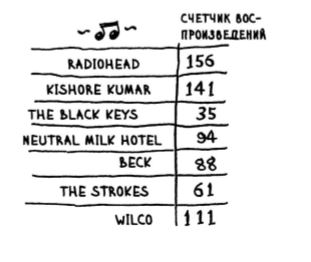 СЧЕТЧИК ВОС-
ПРОИЗВЕДЕНИЙ
RADIOHEAD 156
KISHORE KUMAR 141
THE BLACK KEYS 35
NEUTRAL MILK HOTEL 94
BECK 88
THE STROKES 61
WILCO 111